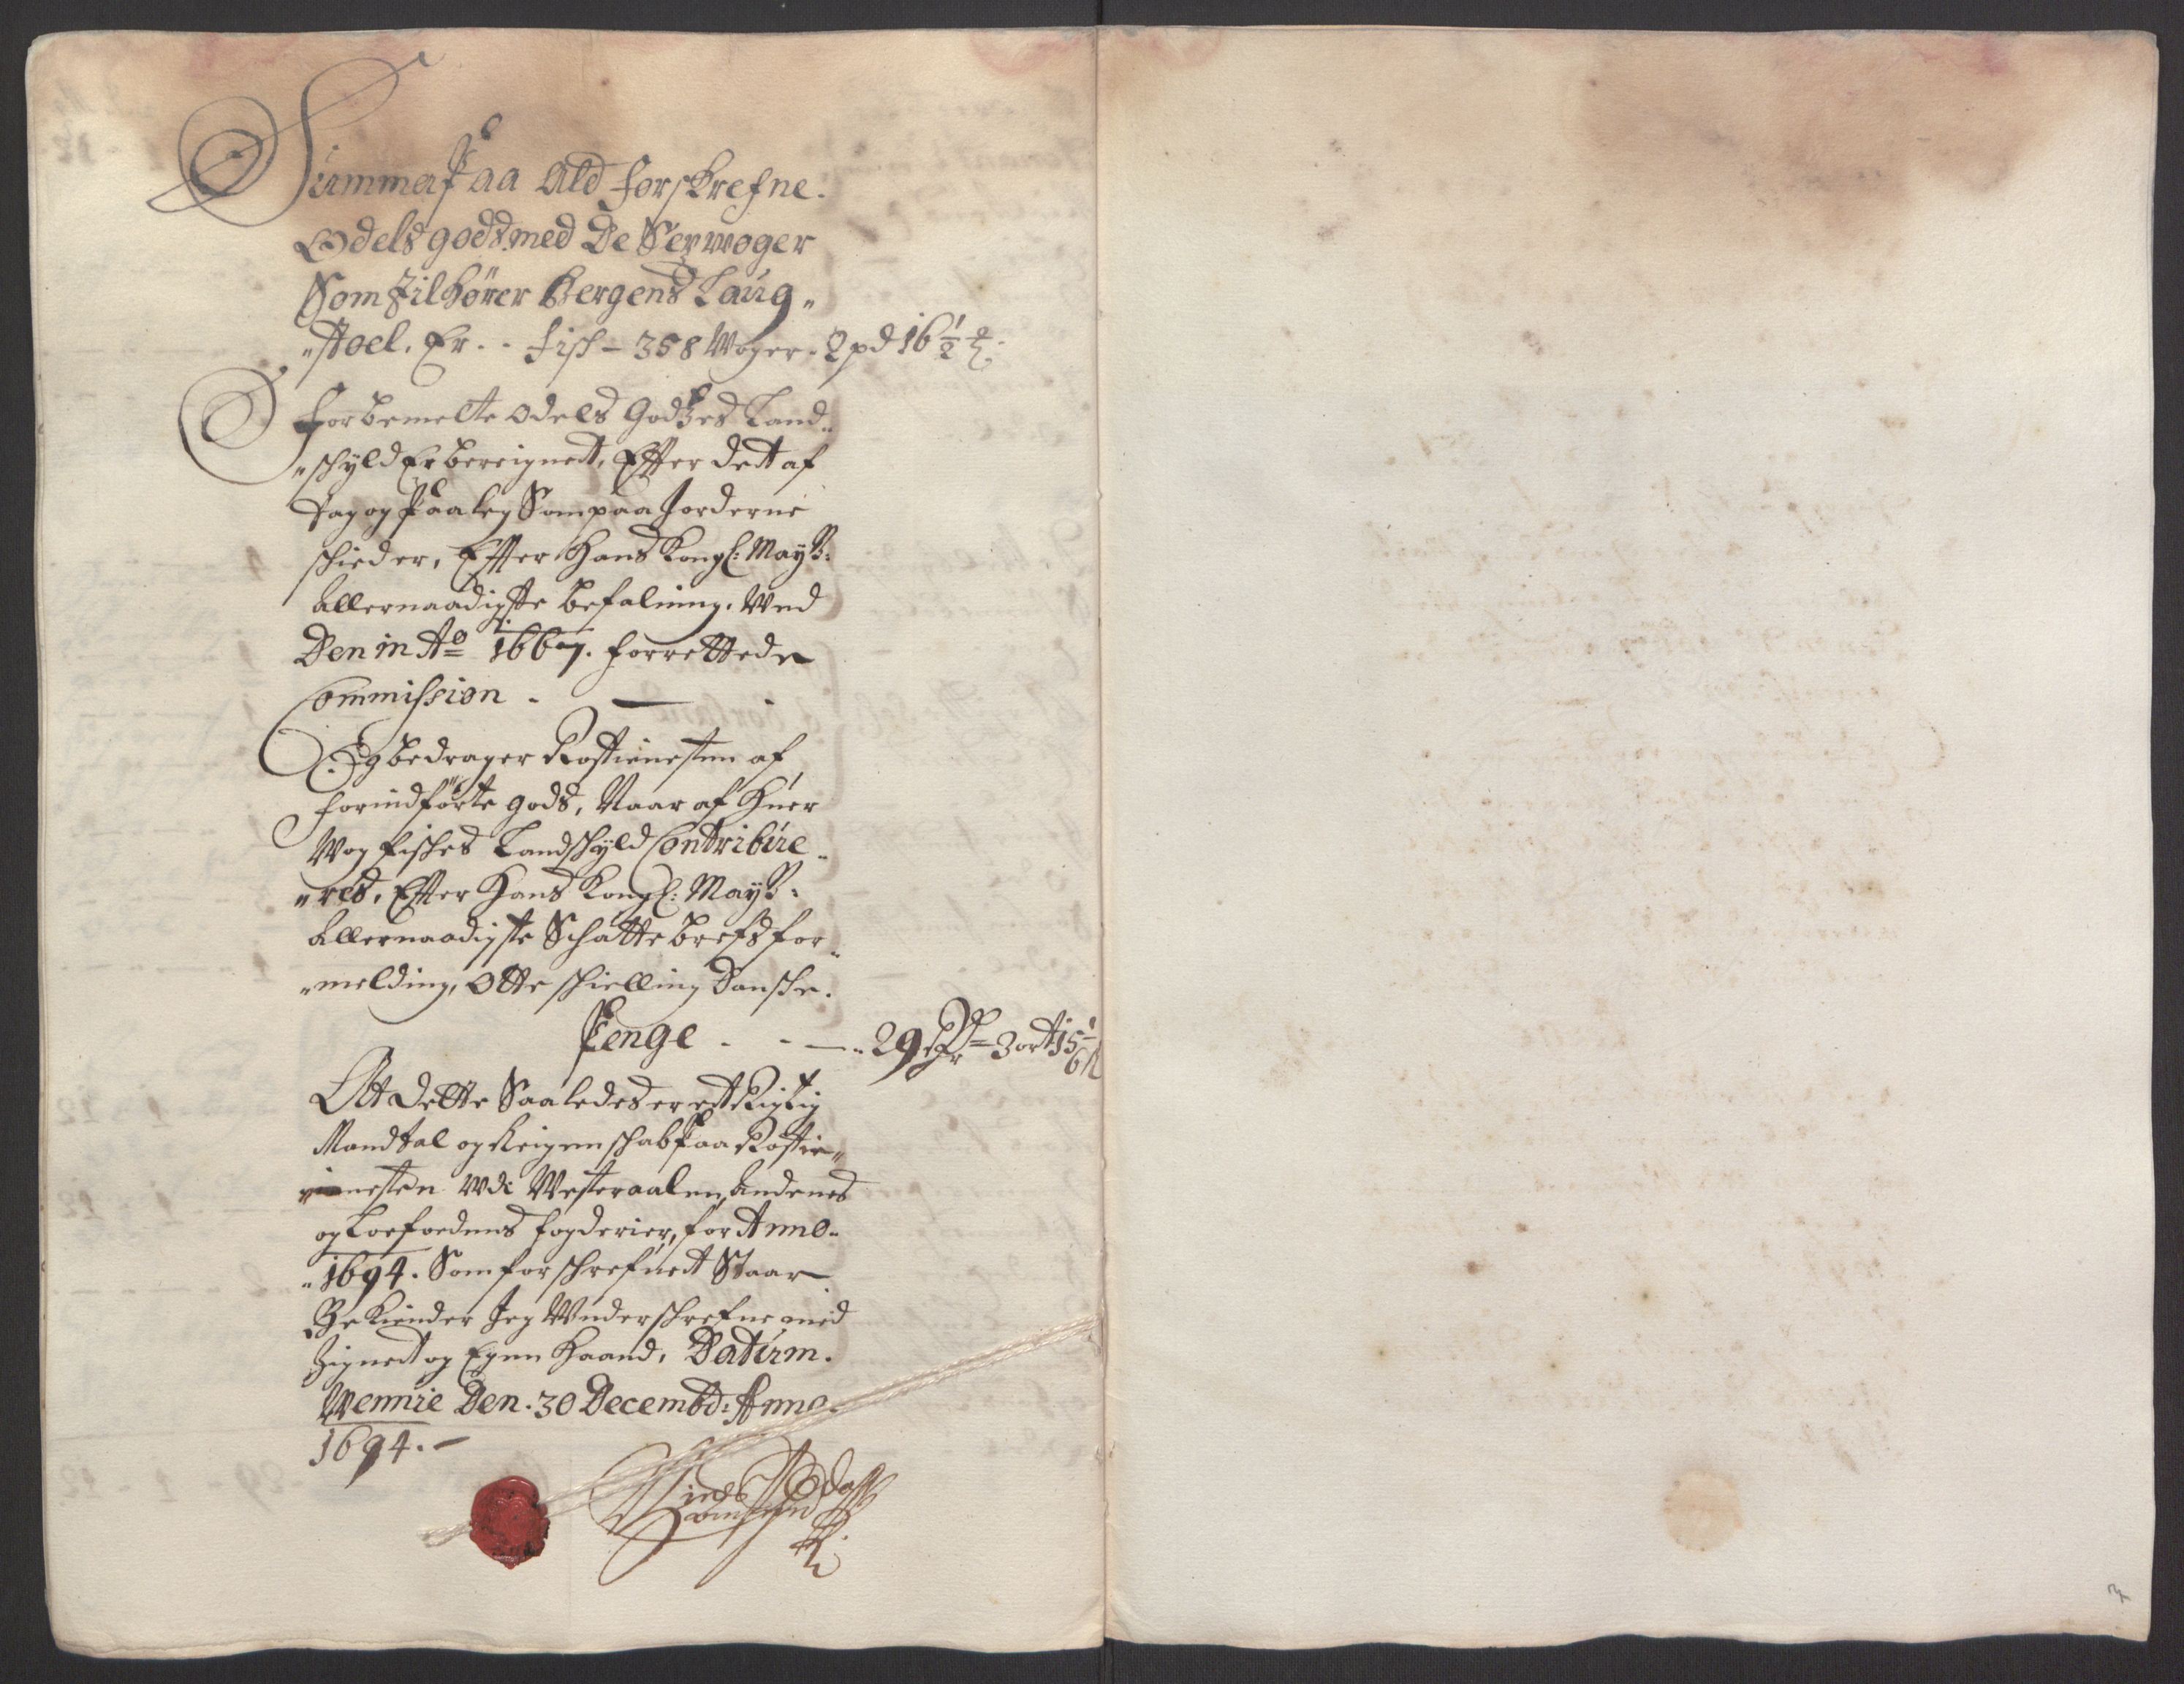 Summa Paa Ald forskrefne.
Odels gods med De 8 er woger
Som Tilhører Bergens Laug„
„stoel. Er.. Fisk – 358 Woger. 2 pd 16 1/2 ℔.
forbemelte Odels Godtzes Land„
„schyld Er bereignedt, Efter dett af
Tag og Paaleg Som paa Jorderne
schieder, Efter Hans Kongl: Mayts:
Allernaadigste befalning. Wed
Den in Ao 1667. forrettede
Commission. —
Og bedrager Rostienesten af
forindførte gods, Naar af huer
Wog fisches Landschyld Contribüe„
„res, Efter Hans Kongl: Mayts:
Allernaadigste Schatte brefs for„
„melding, Otte schielling Dansche.
Penge . . — „ 29 Rdr – 3 ort 15 1/6 s
Att dette Saaledes er ett Rigtig
Mandtal og Reigenschab Paa Rostie„
nesten udi Westeraalen, Andenes
og Loefoedens fogderier, for Anno.
„1694. Som forschrefuet Staar
Bekiender Jeg Underschrefne med
Zignet og Egen Haand, Datum.
Wennie Den. 30 Decembr: Anno.
1694. –